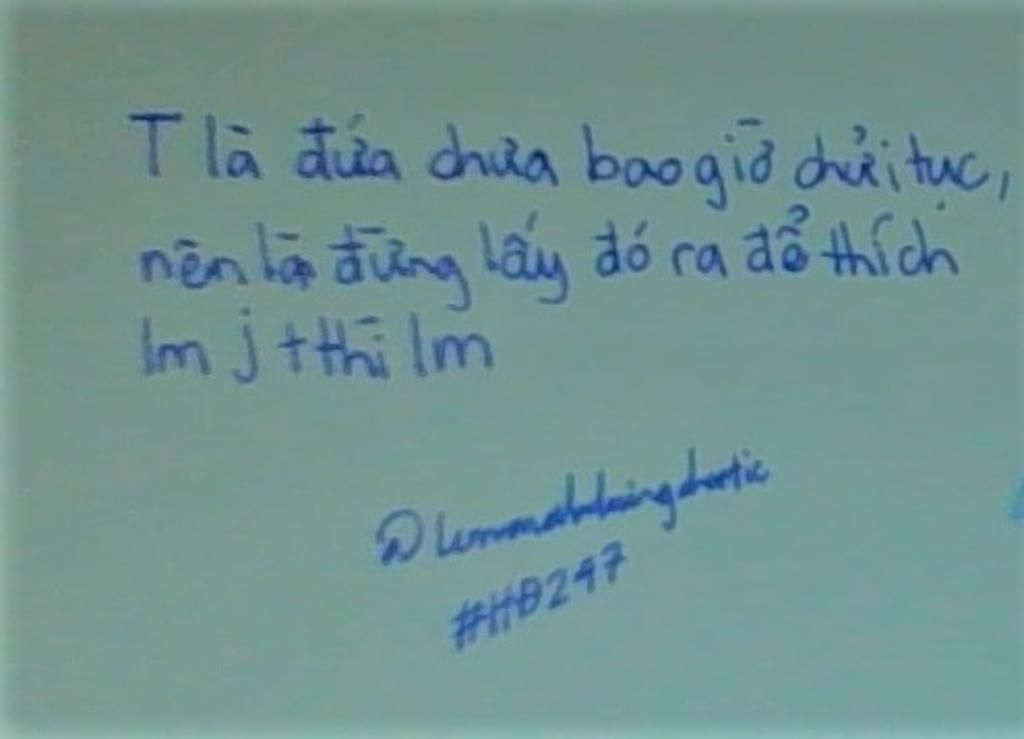 T là đứa chưa bao giờ chửi tục,
nên là đừng lấy đó ra để thích
lm j t thì lm
#HB247